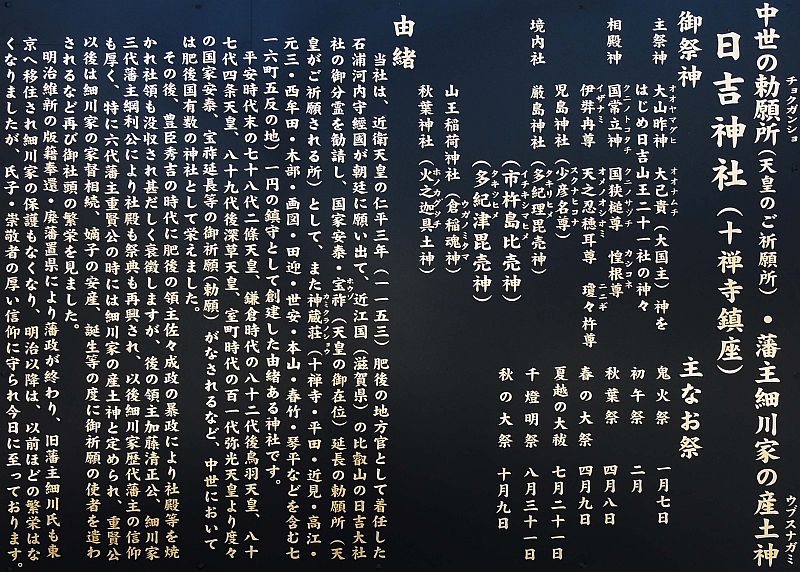 中世の勅願所（天皇のご祈願所）・藩主細川家の産土神
チョクガンショ
ウブスナガミ
日吉神社（十禅寺鎮座）
御祭神
主祭神 大山昨神 大己貴（大国主）神を
オオヤマグヒ オオナムチ
はじめ日吉山王二十一社の神々
相殿神 国常立神 国狭槌尊 惶根尊
クニノトコタチ クニノサツチ カシコネ
伊弉冉尊 天之忍穂耳尊 瓊々杵尊
イザナミ アメノオシオミ ニニギ
児島神社（少彦名尊）
スクナヒコナ
境内社 厳島神社（多紀理毘売神）
タキリヒメ
（市杵島比売神）
イチキシマヒメ
（多紀津毘売神）
タキツヒメ
山王稲荷神社（倉稲魂神）
ウガノミタマ
秋葉神社（火之迦具土神）
ホノカグツチ
主なお祭
鬼火祭 一月七日
初午祭 二月
秋葉祭 四月八日
春の大祭 四月九日
夏越の大祓 七月二十一日
千燈明祭 八月三十一日
秋の大祭 十月九日
由緒
当社は、近衛天皇の仁平三年（一一五三）肥後の地方官として着任した
石浦河内守經國が朝廷に願い出て、近江国（滋賀県）の比叡山の日吉大社
社の御分霊を勧請し、国家安泰・宝祚（天皇の御在位）延長の勅願所（天
ホウソ
皇がご祈願される所）として、また神蔵荘（十禅寺・平田・近見・高江・
カミクラノショウ
元三・西牟田・木部・画図・田迎・世安・本山・春竹・琴平などを含む七
一六町五反の地）一円の鎮守として創建した由緒ある神社です。
平安時代末の七十八代二條天皇、鎌倉時代の八十二代後鳥羽天皇、八十
七代四条天皇、八十九代後深草天皇、室町時代の百一代弥光天皇より度々
の国家安泰、宝祚延長等の御祈願（勅願）がなされるなど、中世において
は肥後国有数の神社として栄えました。
その後、豊臣秀吉の時代に肥後の領主佐々成政の暴政により社殿等を焼
かれ社領も没収され甚だしく衰微しますが、後の領主加藤清正公、細川家
三代藩主綱利公により社殿も祭典も再興され、以後細川家歴代藩主の信仰
も厚く、特に六代藩主重賢公の時には細川家の産土神と定められ、重賢公
以後は細川家の家督相続、嫡子の安産、誕生等の度に御祈願の使者を遣わ
されるなど再び御社頭の繁栄を見ました。
明治維新の版籍奉還・廃藩置県により藩政が終わり、旧藩主細川氏も東
京へ移住され細川家の保護もなくなり、明治以降は、以前ほどの繁栄はな
くなりましたが、氏子・崇敬者の厚い信仰に守られ今日に至っております。